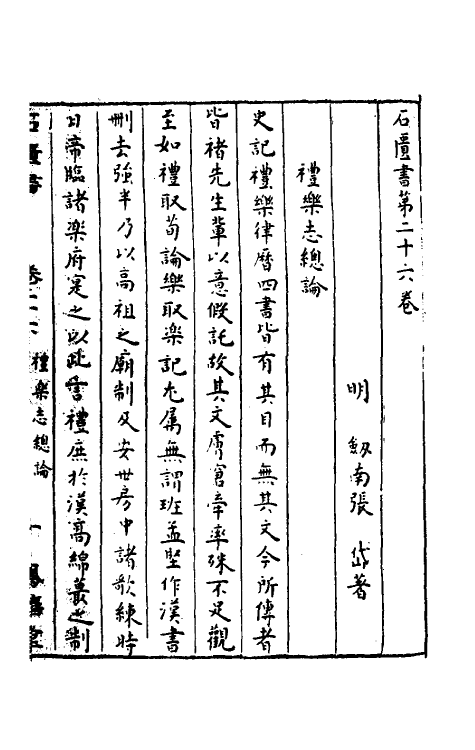 石匱書第二十六卷
明 劔南張 岱著
禮樂志總論
史記禮樂律曆四書皆有其目而無其文今所傳者
皆褚先生輩以意假託故其文膚窘牽率殊不足觀
至如禮取荀論樂取樂記尤屬無謂班孟堅作漢書
刪去強半乃以高祖之廟制及安世房中諸歌練時
日帝臨諸樂府定之以跣書禮庶於漢高綿蕞之制
石匱書 卷二十六 禮樂志總論 一 鳳嬉堂